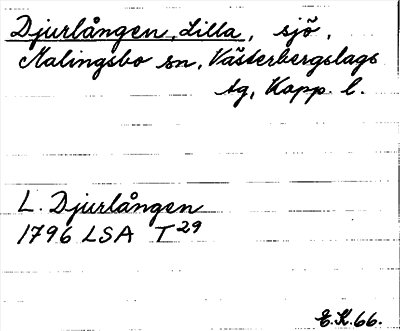 Djurlången, Lilla, sjö,
Malingsbo sn, Västerbergslags
tg, Kopp. l.
L. Djurlången
1796 LSA T29
E.K. 66.